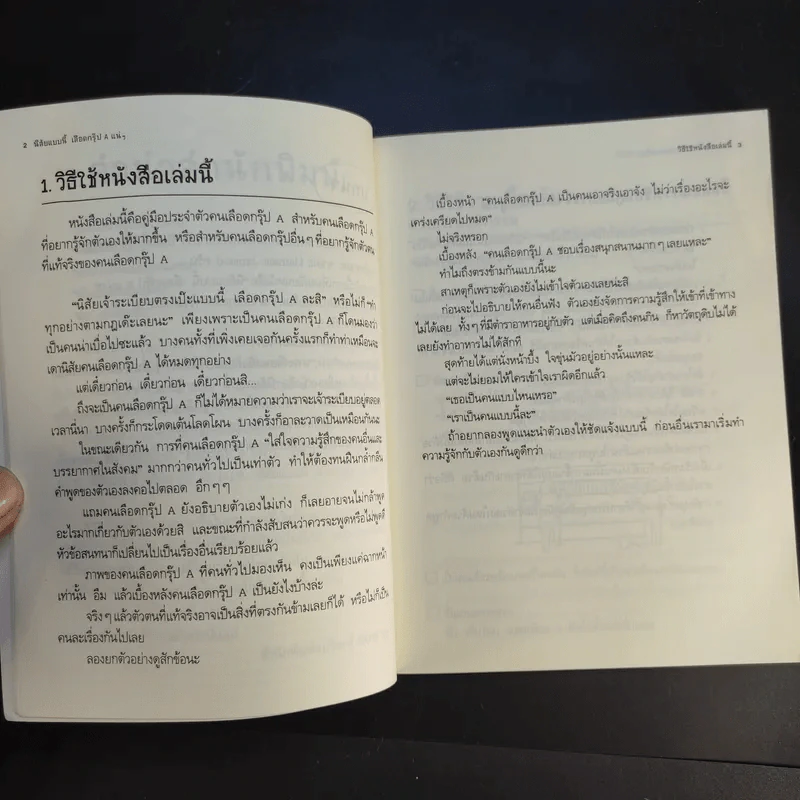 2 นิสัยแบบนี้ เลือดกรุ๊ป A แน่ๆ
1. วิธีใช้หนังสือเล่มนี้
หนังสือเล่มนี้คือคู่มือประจำตัวคนเลือดกรุ๊ป A สำหรับคนเลือดกรุ๊ป A
ที่อยากรู้จักตัวเองให้มากขึ้น หรือสำหรับคนเลือดกรุ๊ปอื่นๆ ที่อยากรู้จักตัวตน
ที่แท้จริงของคนเลือดกรุ๊ป A
“นิสัยเจ้าระเบียบตรงเป๊ะแบบนี้ เลือดกรุ๊ป A ละสิ” หรือไม่ก็ “ทำ
ทุกอย่างตามกฎเด๊ะเลยนะ” เพียงเพราะเป็นคนเลือดกรุ๊ป A ก็โดนมองว่า
เป็นคนน่าเบื่อไปซะแล้ว บางคนทั้งที่เพิ่งเคยเจอกันครั้งแรกก็ทำท่าเหมือนจะ
เดานิสัยคนเลือดกรุ๊ป A ได้หมดทุกอย่าง
แต่เดี๋ยวก่อน เดี๋ยวก่อน เดี๋ยวก่อนสิ...
ถึงจะเป็นคนเลือดกรุ๊ป A ก็ไม่ได้หมายความว่าเราจะเจ้าระเบียบอยู่ตลอด
เวลานี่นา บางครั้งก็กระโดดเต้นโลดโผน บางครั้งก็อาละวาดเป็นเหมือนกันนะ
ในขณะเดียวกัน การที่คนเลือดกรุ๊ป A “ใส่ใจความรู้สึกของคนอื่นและ
บรรยากาศในสังคม” มากกว่าคนทั่วไปเป็นเท่าตัว ทำให้ต้องทนฝืนกล้ำกลืน
คำพูดของตัวเองลงคอไปตลอด อึกๆๆ
แถมคนเลือดกรุ๊ป A ยังอธิบายตัวเองไม่เก่ง ก็เลยอายจนไม่กล้าพูด
อะไรมากเกี่ยวกับตัวเองด้วยสิ และขณะที่กำลังสับสนว่าควรจะพูดหรือไม่พูดดี
หัวข้อสนทนาก็เปลี่ยนไปเป็นเรื่องอื่นเรียบร้อยแล้ว
ภาพของคนเลือดกรุ๊ป A ที่คนทั่วไปมองเห็น คงเป็นเพียงแค่ฉากหน้า
เท่านั้น อืม แล้วเบื้องหลังคนเลือดกรุ๊ป A เป็นยังไงบ้างล่ะ
จริงๆ แล้วตัวตนที่แท้จริงอาจเป็นสิ่งที่ตรงกันข้ามเลยก็ได้ หรือไม่ก็เป็น
คนละเรื่องกันไปเลย
ลองยกตัวอย่างดูสักข้อนะ
วิธีใช้หนังสือเล่มนี้ 3
เบื้องหน้า “คนเลือดกรุ๊ป A เป็นคนเอาจริงเอาจัง ไม่ว่าเรื่องอะไรจะ
เคร่งเครียดไปหมด”
ไม่จริงหรอก
เบื้องหลัง “คนเลือดกรุ๊ป A ชอบเรื่องสนุกสนานมากๆ เลยแหละ”
ทำไมถึงตรงข้ามกันแบบนี้นะ
สาเหตุก็เพราะตัวเองยังไม่เข้าใจตัวเองเลยน่ะสิ
ก่อนจะไปอธิบายให้คนอื่นฟัง ตัวเองยังจัดการความรู้สึกให้เข้าที่เข้าทาง
ไม่ได้เลย ทั้งๆ ที่มีตำราอาหารอยู่กับตัว แต่เมื่อคิดถึงคนกิน ก็หาวัตถุดิบไม่ได้
เลยยังทำอาหารไม่ได้สักที
สุดท้ายได้แต่นั่งหน้าบึ้ง ใจขุ่นมัวอยู่อย่างนั้นแหละ
แต่จะไม่ยอมให้ใครเข้าใจเราผิดอีกแล้ว
“เธอเป็นคนแบบไหนเหรอ”
“เราเป็นคนแบบนี้ละ”
ถ้าอยากลองพูดแนะนำตัวเองให้ชัดแจ้งแบบนี้ ก่อนอื่นเรามาเริ่มทำ
ความรู้จักกับตัวเองกันดูดีกว่า